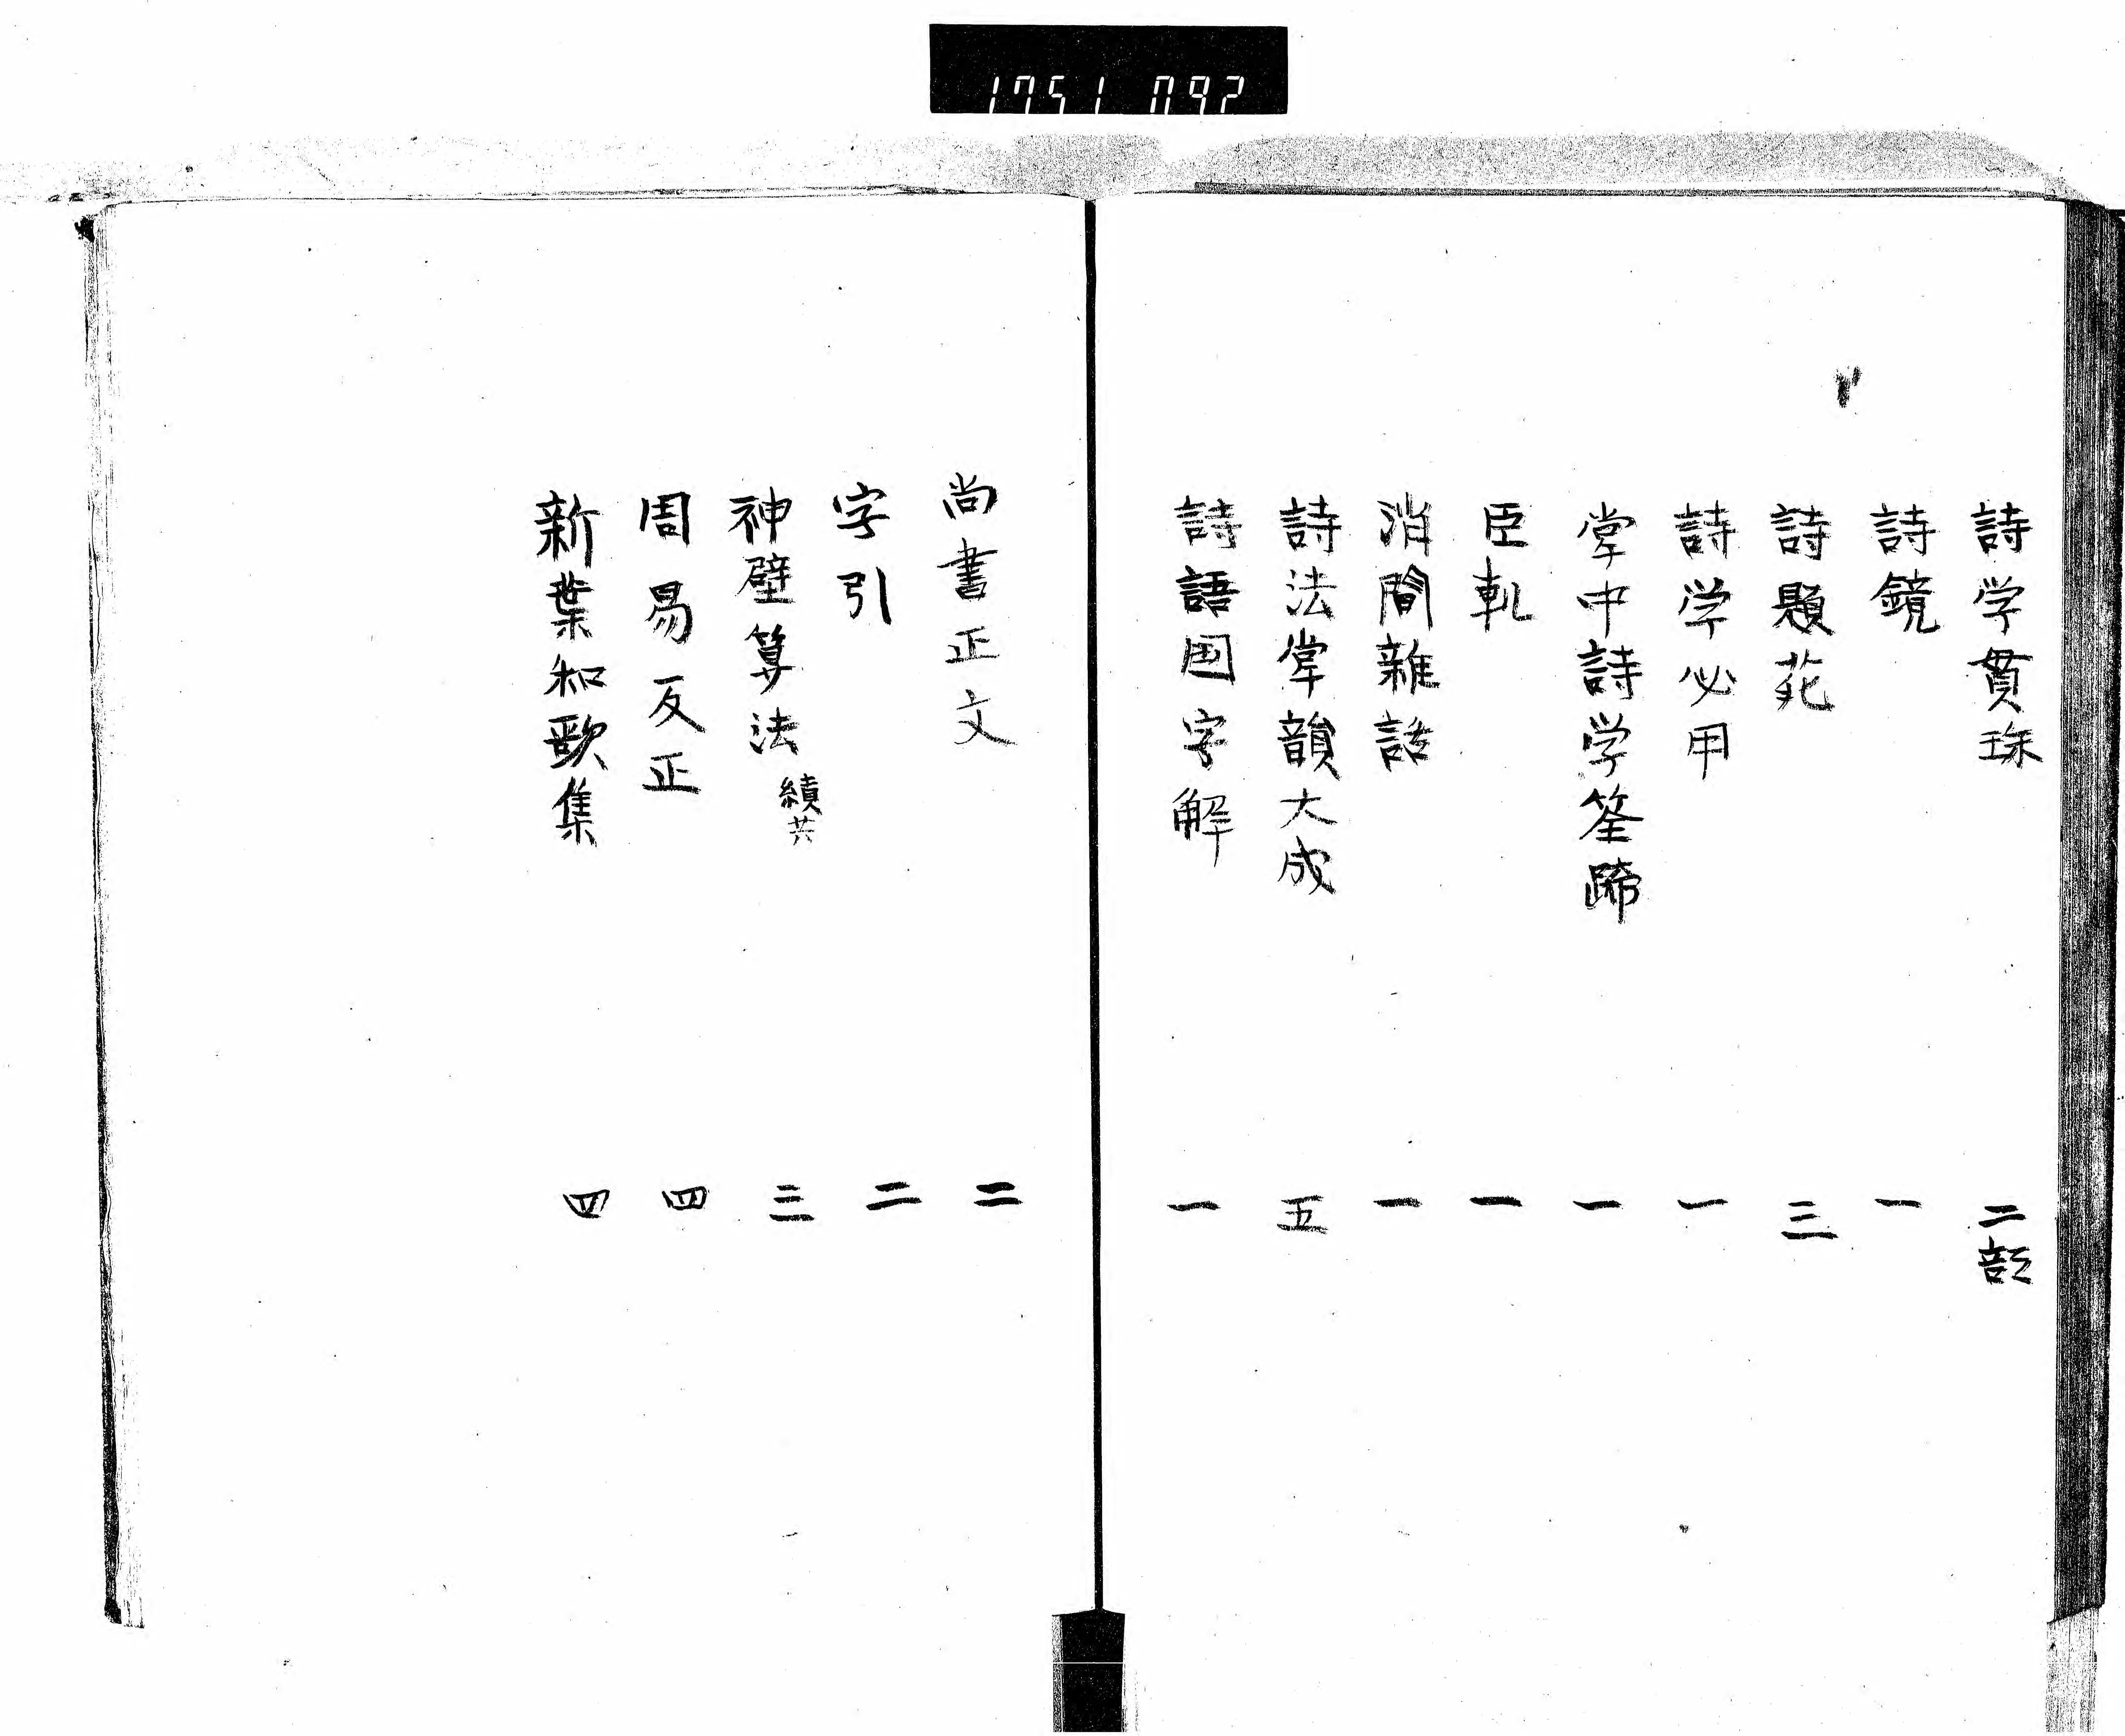 1751 092
詩学貫珠 二部
詩鏡 一
詩題苑 三
詩学必用 一
掌中詩学筌蹄 一
臣軌 一
消間雑話 一
詩法掌韻大成 五
詩語国字解 一
尚書正文 二
字引 二
神壁算法 続共 三
周易反正 四
新葉和歌集 四